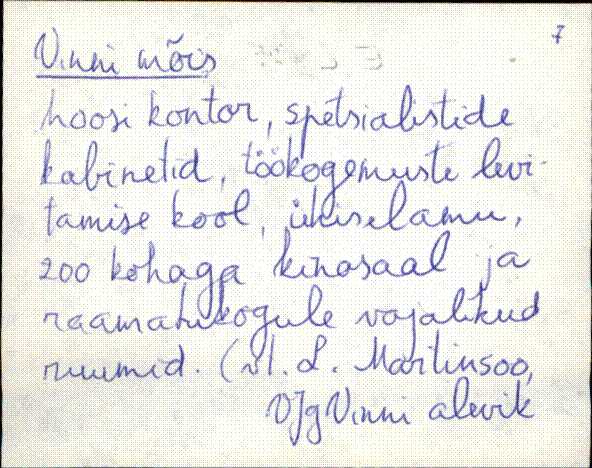 7
Vinni mõis
hoosi kontor, spetsialistide
kabinetid, töökogemuste levi-
tamise kool, ühiselamu,
200 kohaga kinosaal ja
raamatukogule vajalikud
ruumid. (vt. L. Martinsoo,
VJg Vinni alevik